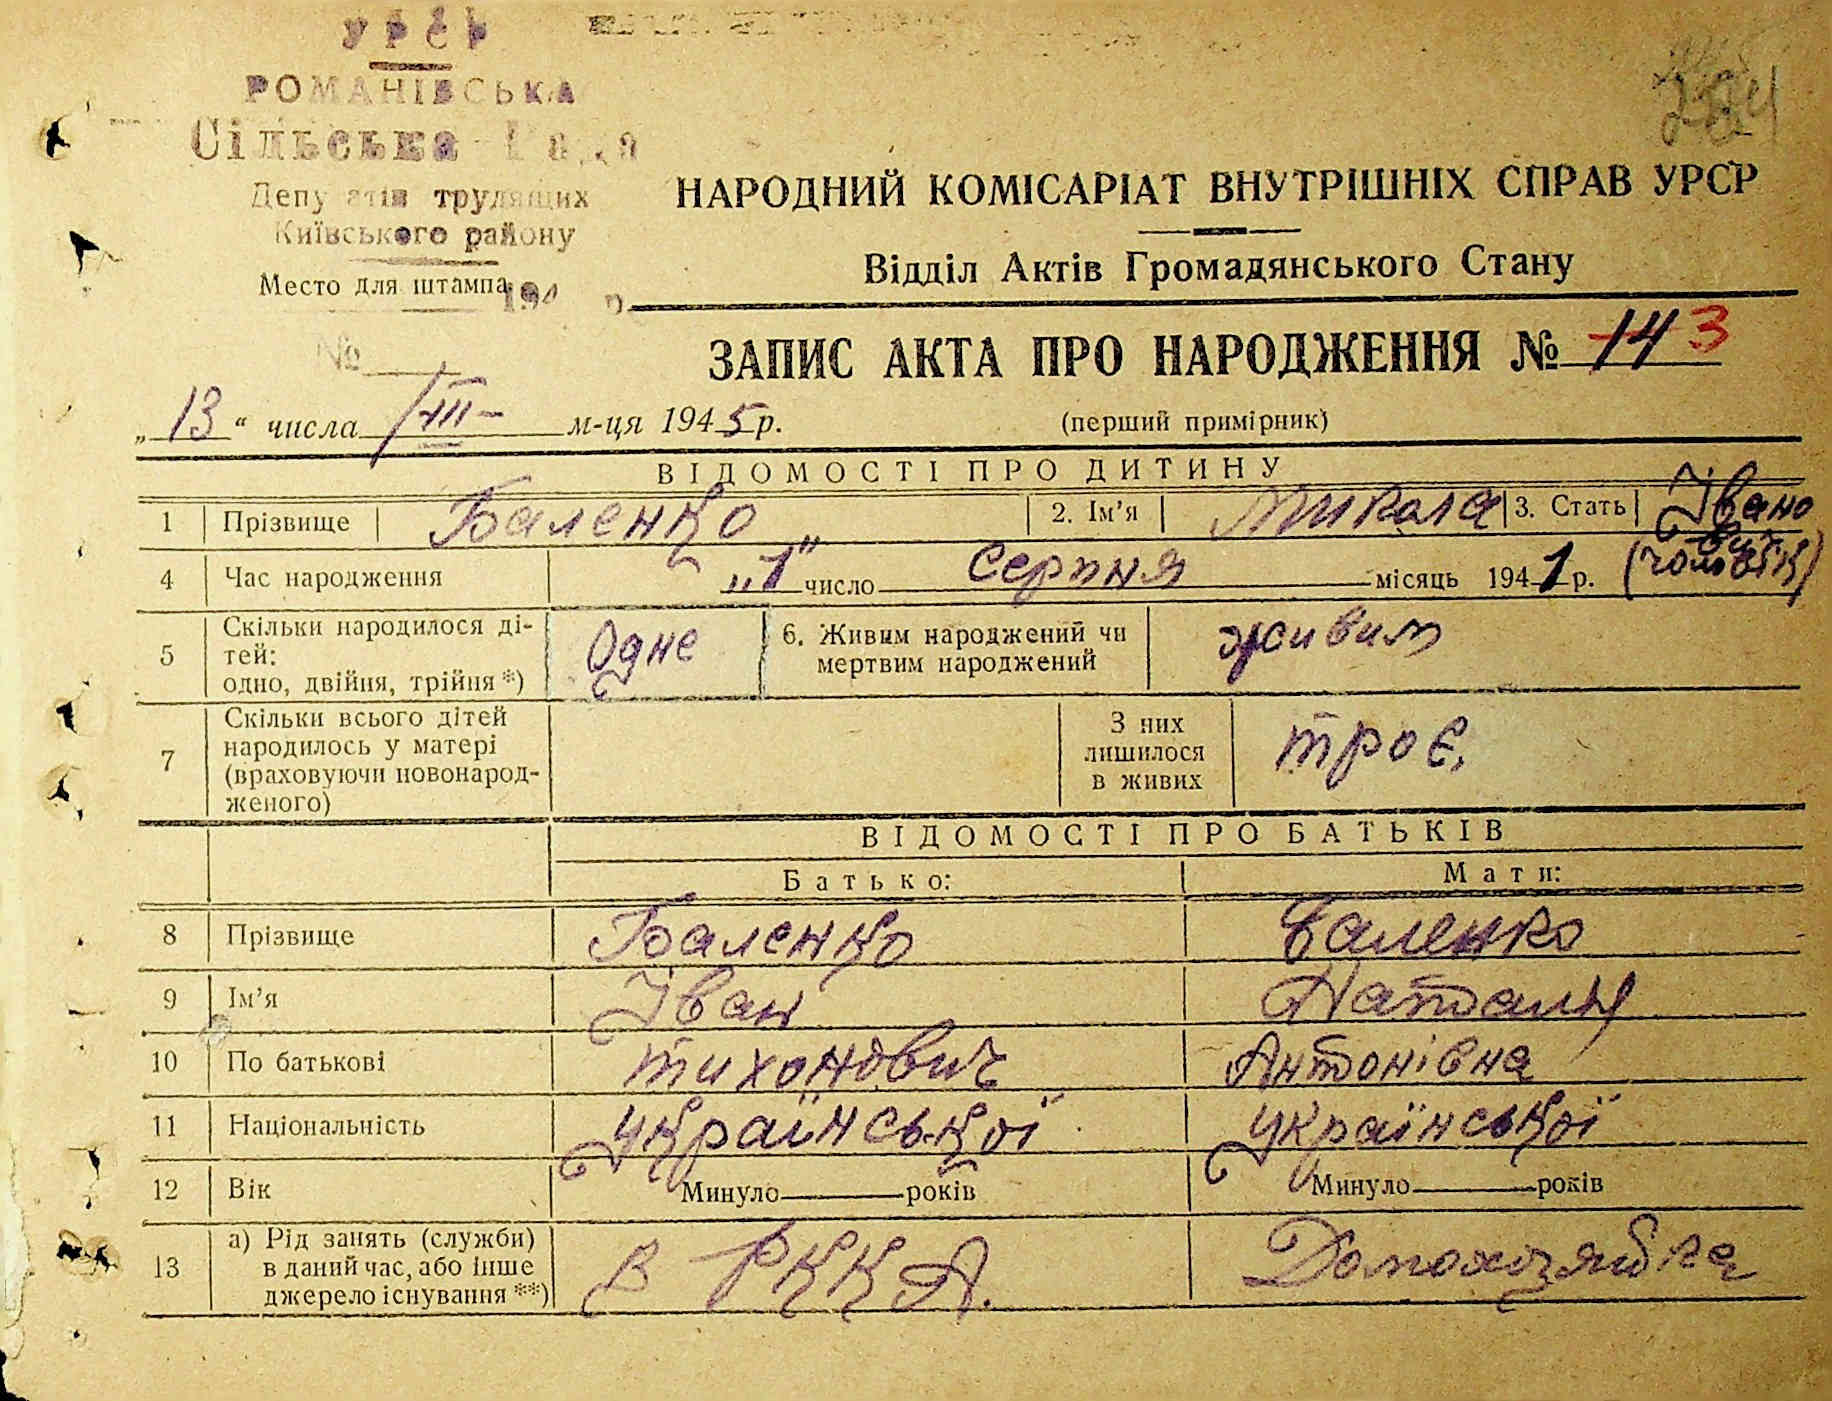 УРСР
РОМАНІВСЬКА
Сільська Рада
Депутатів трудящих
Київського району
Место для штампа
194 р.
№
НАРОДНИЙ КОМІСАРІАТ ВНУТРІШНІХ СПРАВ УРСР
Відділ Актів Громадянського Стану
ЗАПИС АКТА ПРО НАРОДЖЕННЯ № 14 3
„13" числа VIII м-ця 1945 р. (перший примірник)
ВІДОМОСТІ ПРО ДИТИНУ
1 Прізвище Баленко 2. Ім'я Микола 3. Стать Івано
вич
4 Час народження „1" число Серпня місяць 1941 р. (чоловік)
5 Скільки народилося ді-
тей:
одно, двійня, трійня *) Одне 6. Живим народжений чи
мертвим народжений живим
7 Скільки всього дітей
народилось у матері
(враховуючи новонарод-
женого) З них
лишилося
в живих троє.
ВІДОМОСТІ ПРО БАТЬКІВ
Батько: Мати:
8 Прізвище Баленко Баленко
9 Ім'я Іван Наталя
10 По батькові тихонович Антонівна
11 Національність української української
12 Вік Минуло років Минуло років
13 а) Рід занять (служби)
в даний час, або інше
джерело існування **) в РККА. Домохозяйка